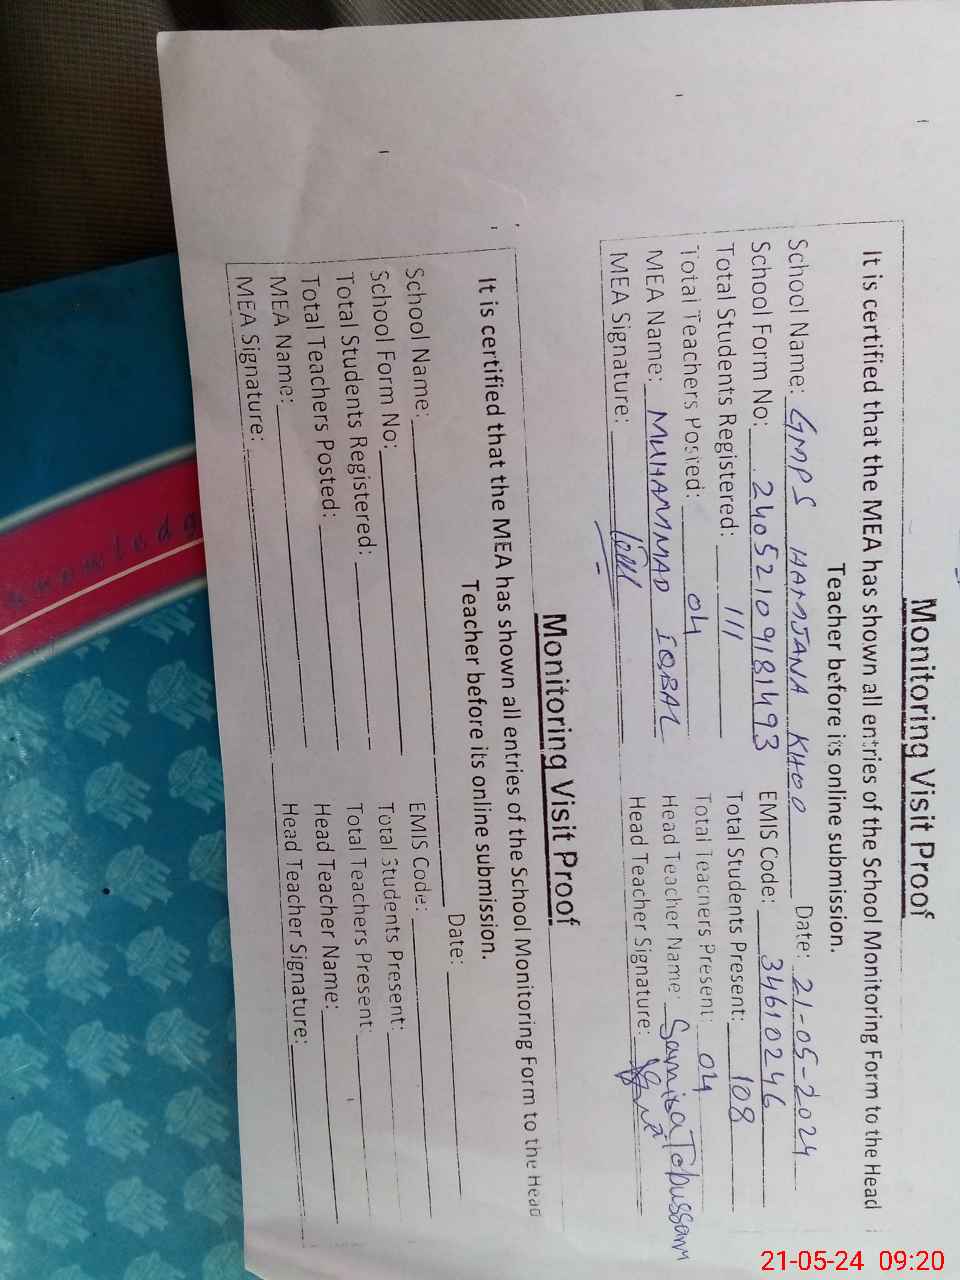 Monitoring Visit Proof
It is certified that the MEA has shown all entries of the School Monitoring Form to the Head
Teacher before its online submission.
School Name: GMPS HAMJANA KHOO Date: 21-05-2024
School Form No: 24052109181493 EMIS Code: 34610246
Total Students Registered: 111 Total Students Present: 108
Total Teachers Posted: 04 Total Teachers Present: 04
MEA Name: MUHAMMAD IQBAL Head Teacher Name: Samina Tabussam
MEA Signature: Head Teacher Signature:
Monitoring Visit Proof
It is certified that the MEA has shown all entries of the School Monitoring Form to the Head
Teacher before its online submission.
School Name: Date:
School Form No: EMIS Code:
Total Students Registered: Total Students Present:
Total Teachers Posted: Total Teachers Present:
MEA Name: Head Teacher Name:
MEA Signature: Head Teacher Signature:
21-05-24 09:20